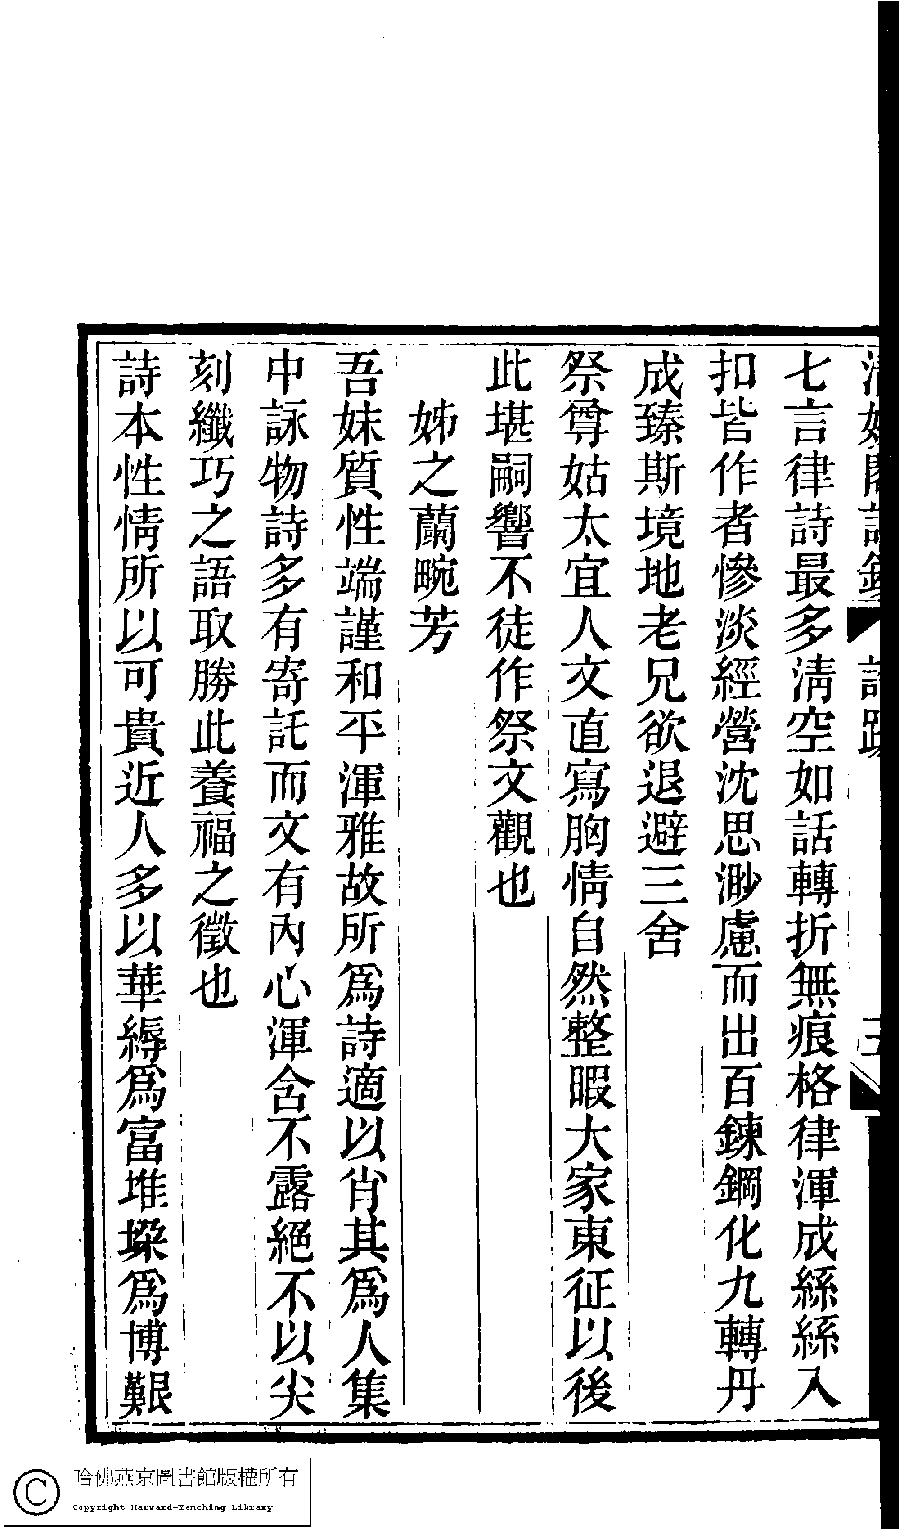 詩鈔 詩跋 三
七言律詩最多淸空如話轉折無痕格律渾成絲絲入
扣皆作者慘淡經營沈思渺慮而出百鍊鋼化九轉丹
成臻斯境地老兄欲退避三舍
祭尊姑太宜人文直寫胸情自然整暇大家東征以後
此堪嗣響不徒作祭文觀也
姊之蘭畹芳
吾妹質性端謹和平渾雅故所爲詩適以肖其爲人集
中詠物詩多有寄託而文有內心渾含不露絕不以尖
刻纖巧之語取勝此養福之徵也
詩本性情所以可貴近人多以華縟爲富堆垜爲博艱
哈佛燕京圖書館版權所有
Copyright Harvard-Yenching Library